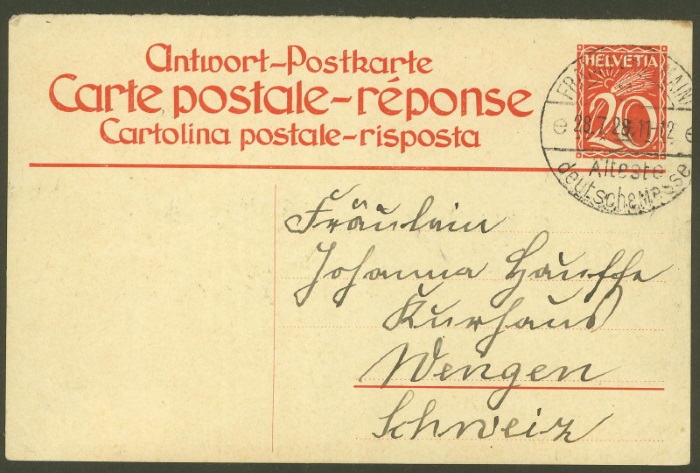 Antwort-Postkarte
Carte postale-réponse
Cartolina postale-risposta
HELVETIA
20
28.7.28.11-12
Älteste
deutsche Messe
Fräulein
Johanna Hauffe
Kurhaus
Wengen
Schweiz